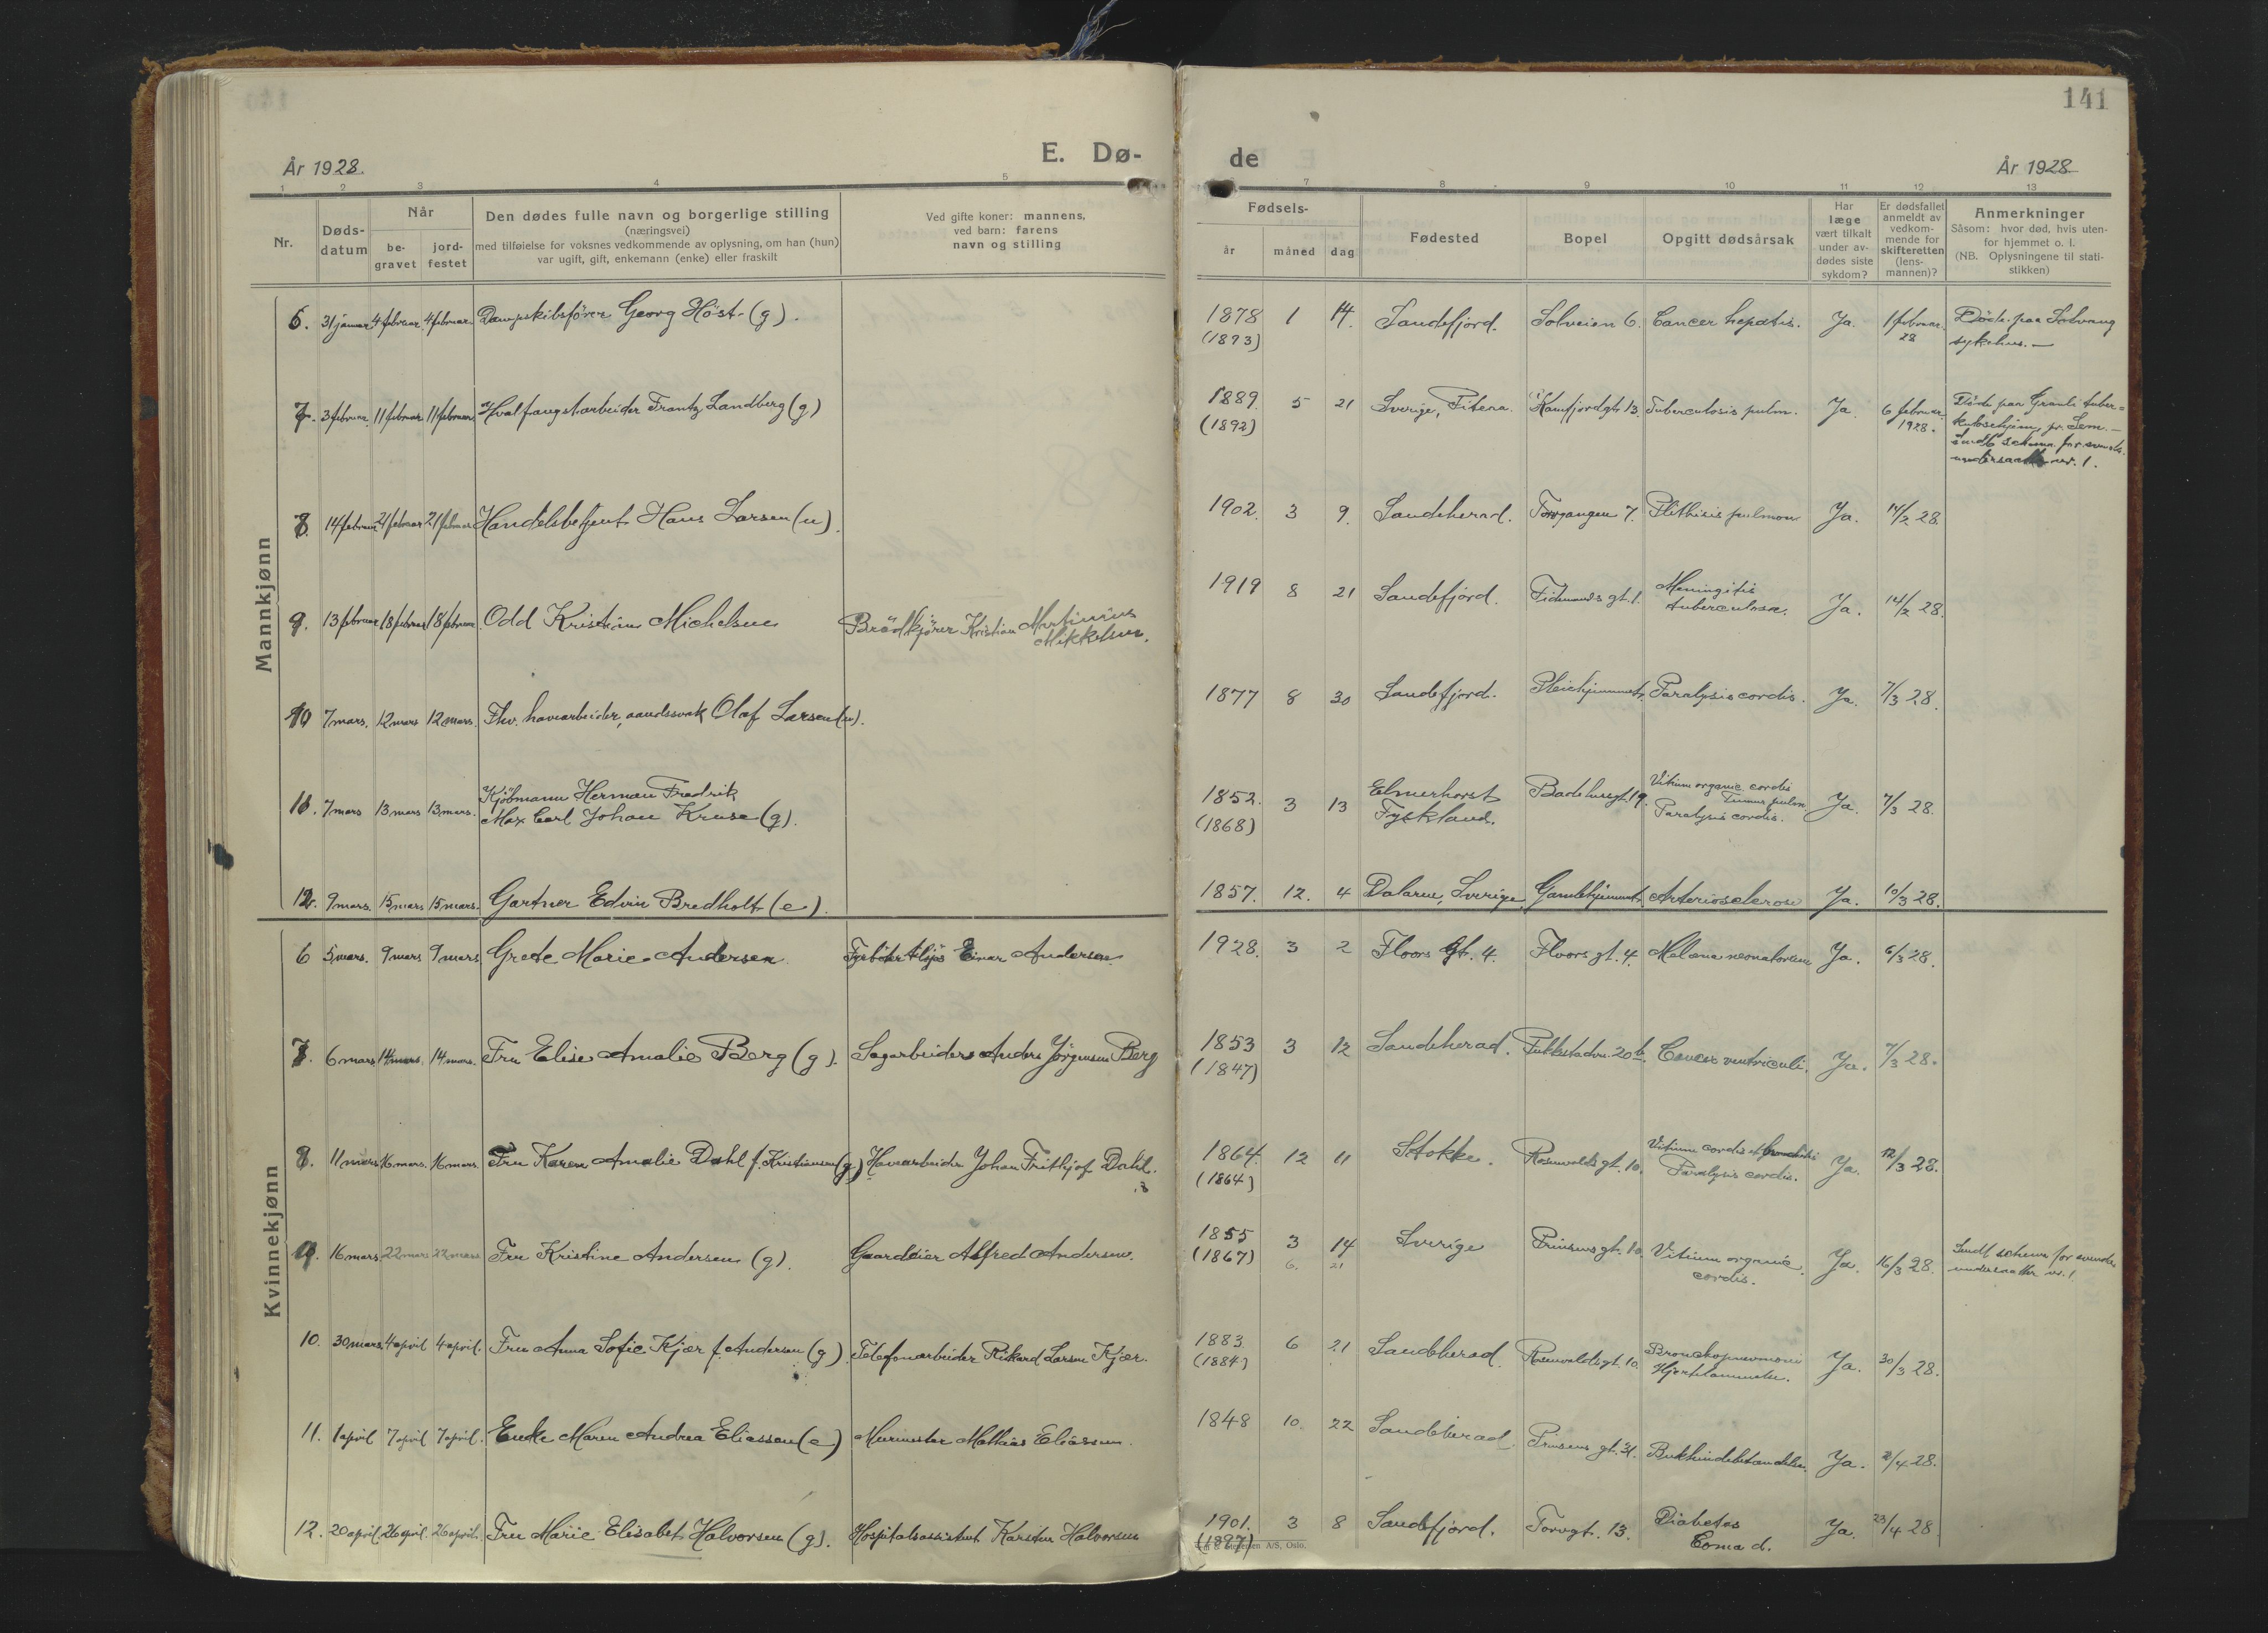 141
År 1928.
E. Dø-
de
År 1928
1 2 3 4 5 7 8 9 10 11 12 13
Nr.
Døds-
datum
Når
be-
gravet
jord-
festet
Den dødes fulle navn og borgerlige stilling
(næringsvei)
med tilføielse for voksnes vedkommende av oplysning, om han (hun)
var ugift, gift, enkemann (enke) eller fraskilt
Ved gifte koner: mannens,
ved barn: farens
navn og stilling
Fødsels-
år måned dag
Fødested
Bopel
Opgitt dødsårsak
Har
læge
vært tilkalt
under av-
dødes siste
sykdom?
Er dødsfallet
anmeldt av
vedkom-
mende for
skifteretten
(lens-
mannen)?
Anmerkninger
Såsom: hvor død, hvis uten-
for hjemmet o. l.
(NB. Oplysningene til stati-
stikken)
Mannkjønn
6. 31 januar 4 februar 4 februar. Dampskibsfører Georg Höst (g). 1878 1 14. Sandefjord. Solveien 6. Cancer hepatis. Ja. 1 februar. Döde paa Solvang
(1893) 28 sykehus. —
7. 3 februar. 11 februar 11 februar Hvalfangstarbeider Frantz Landberg (g) 1889. 5 21 Sverige, Pitea. Kamfjordgt. 13. Tuberculosis pulm. Ja. 6 februar. Döde paa Granli tuber=
(1892) 1928. kulosehjem, pr. Sem. —
Sendt schema for svensk.
undersaatter nr. 1.
8. 14 februar 21 februar 21 februar Handelsbetjent Hans Larsen (u). 1902. 3 9. Sandeherad. Torvgangen 7. Phthisis pulmon Ja. 14/2 28.
9. 13 februar 18 februar 18 februar. Odd Kristian Michelsen Brödkjörer Kristian Martinius
Mikkelsen. 1919 8 21 Sandefjord. gt. 1. Meningitis
tuberculosa. Ja. 14/2 28.
10 7 mars. 12 mars 12 mars. Fhv. havnearbeider, aandssvak Olaf Larsen (u). 1877 8 30 Sandefjord. Pleiehjemmet. Paralysis cordis. Ja. 7/3 28.
11. 7 mars 13 mars 13 mars. Kjöbmann Herman Fredrik
Max Carl Johan Kruse (g). 1852. 3 13 Elmerhorst
(1868) Tyskland. Badehusgt. 19. Vitium organic cordis
pulm
Paralysis cordis. Ja. 7/3 28.
12. 9 mars. 15 mars 15 mars. Gartner Edvin Bredholt (e). 1857. 12. 4 Dalarne, Sverige. Gamlehjemmet. Arteriosclerose Ja. 10/3 28.
Kvinnekjønn
6 5 mars. 9 mars 9 mars Grete Marie Andersen Fyrböter Einar Andersen 1928. 3 2 Floors gt. 4. Floors gt. 4. Melæna neonatorum Ja. 6/3 28.
7. 6 mars 14 mars. 14 mars. Fru Elise Amalie Berg (g). Sagarbeider Anders Jörgensen Berg 1853 3 12 Sandeherad. Pukkestadvn. 20 b. Cancer ventriculi. Ja. 7/3 28.
(1847)
8. 11 mars 16 mars. 16 mars. Fru Karen Amalie Dahl f. Kristiansen (g) Havnearbeider Johan Frithjof Dahl. 1864. 12 11 Stokke. Rosenvolds gt. 10. Vitium cordis et bronchitis
(1864) Paralysis cordis. Ja. 12/3 28.
9. 16 mars. 22 mars 22 mars Fru Kristine Andersen (g). Gaardeier Alfred Andersen. 1855 3 14 Sverige Prinsens gt. 10. Vitium organic.
(1867) 6. 21 cordis. Ja. 16/3 28. Sendt schema for svenske
undersaatter nr. 1.
10. 30 mars. 4 april 4 april. Fru Anna Sofie Kjær f. Andersen (g). Telefonarbeider Rikard Larsen Kjær. 1883. 6 21 Sandeherad. Rosenvoldsgt. 10. Bronchopneumoni
(1884) Hjertelammelse. Ja. 30/3 28.
11. 1 april 7 april 7 april. Enke Maren Andrea Eliassen (e) Murmester Mathias Eliassen. 1848 10. 22 Sandeherad. Prinsens gt. 31. Bukhindebetændelse. Ja. 2/4 28.
12. 20 april. 26 april. 26 april. Fru Marie Elisabet Halvorsen (g). Hospitalsassistent Karsten Halvorsen 1901. 3 8 Sandefjord. Torvgt. 13. Diabetes
(1897) Coma d. Ja. 23/4 28.
A/S, Oslo.